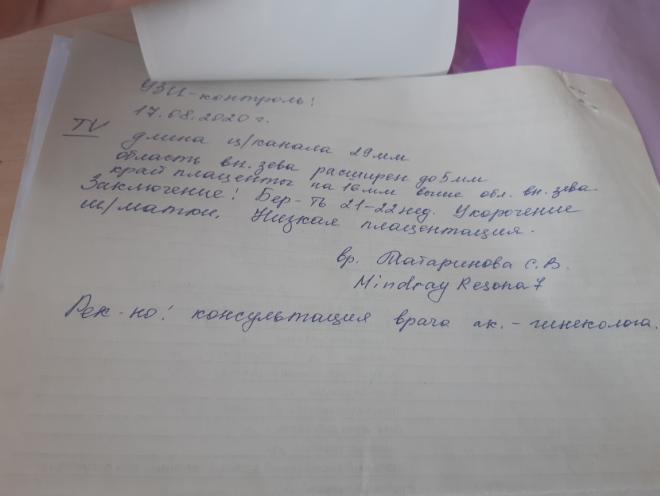 УЗИ-контроль!
17.08.2020 г.
TV длина ц/канала 29мм
область вн. зева расширен до 5мм
край плаценты на 16мм выше обл. вн. зева
Заключение! Бер-ть 21-22нед. Укорочение
ш/матки. Низкая плацентация.
вр. Татаринова С.В.
Mindray Resona 7
Рек-но! консультация врача ак.-гинеколога.